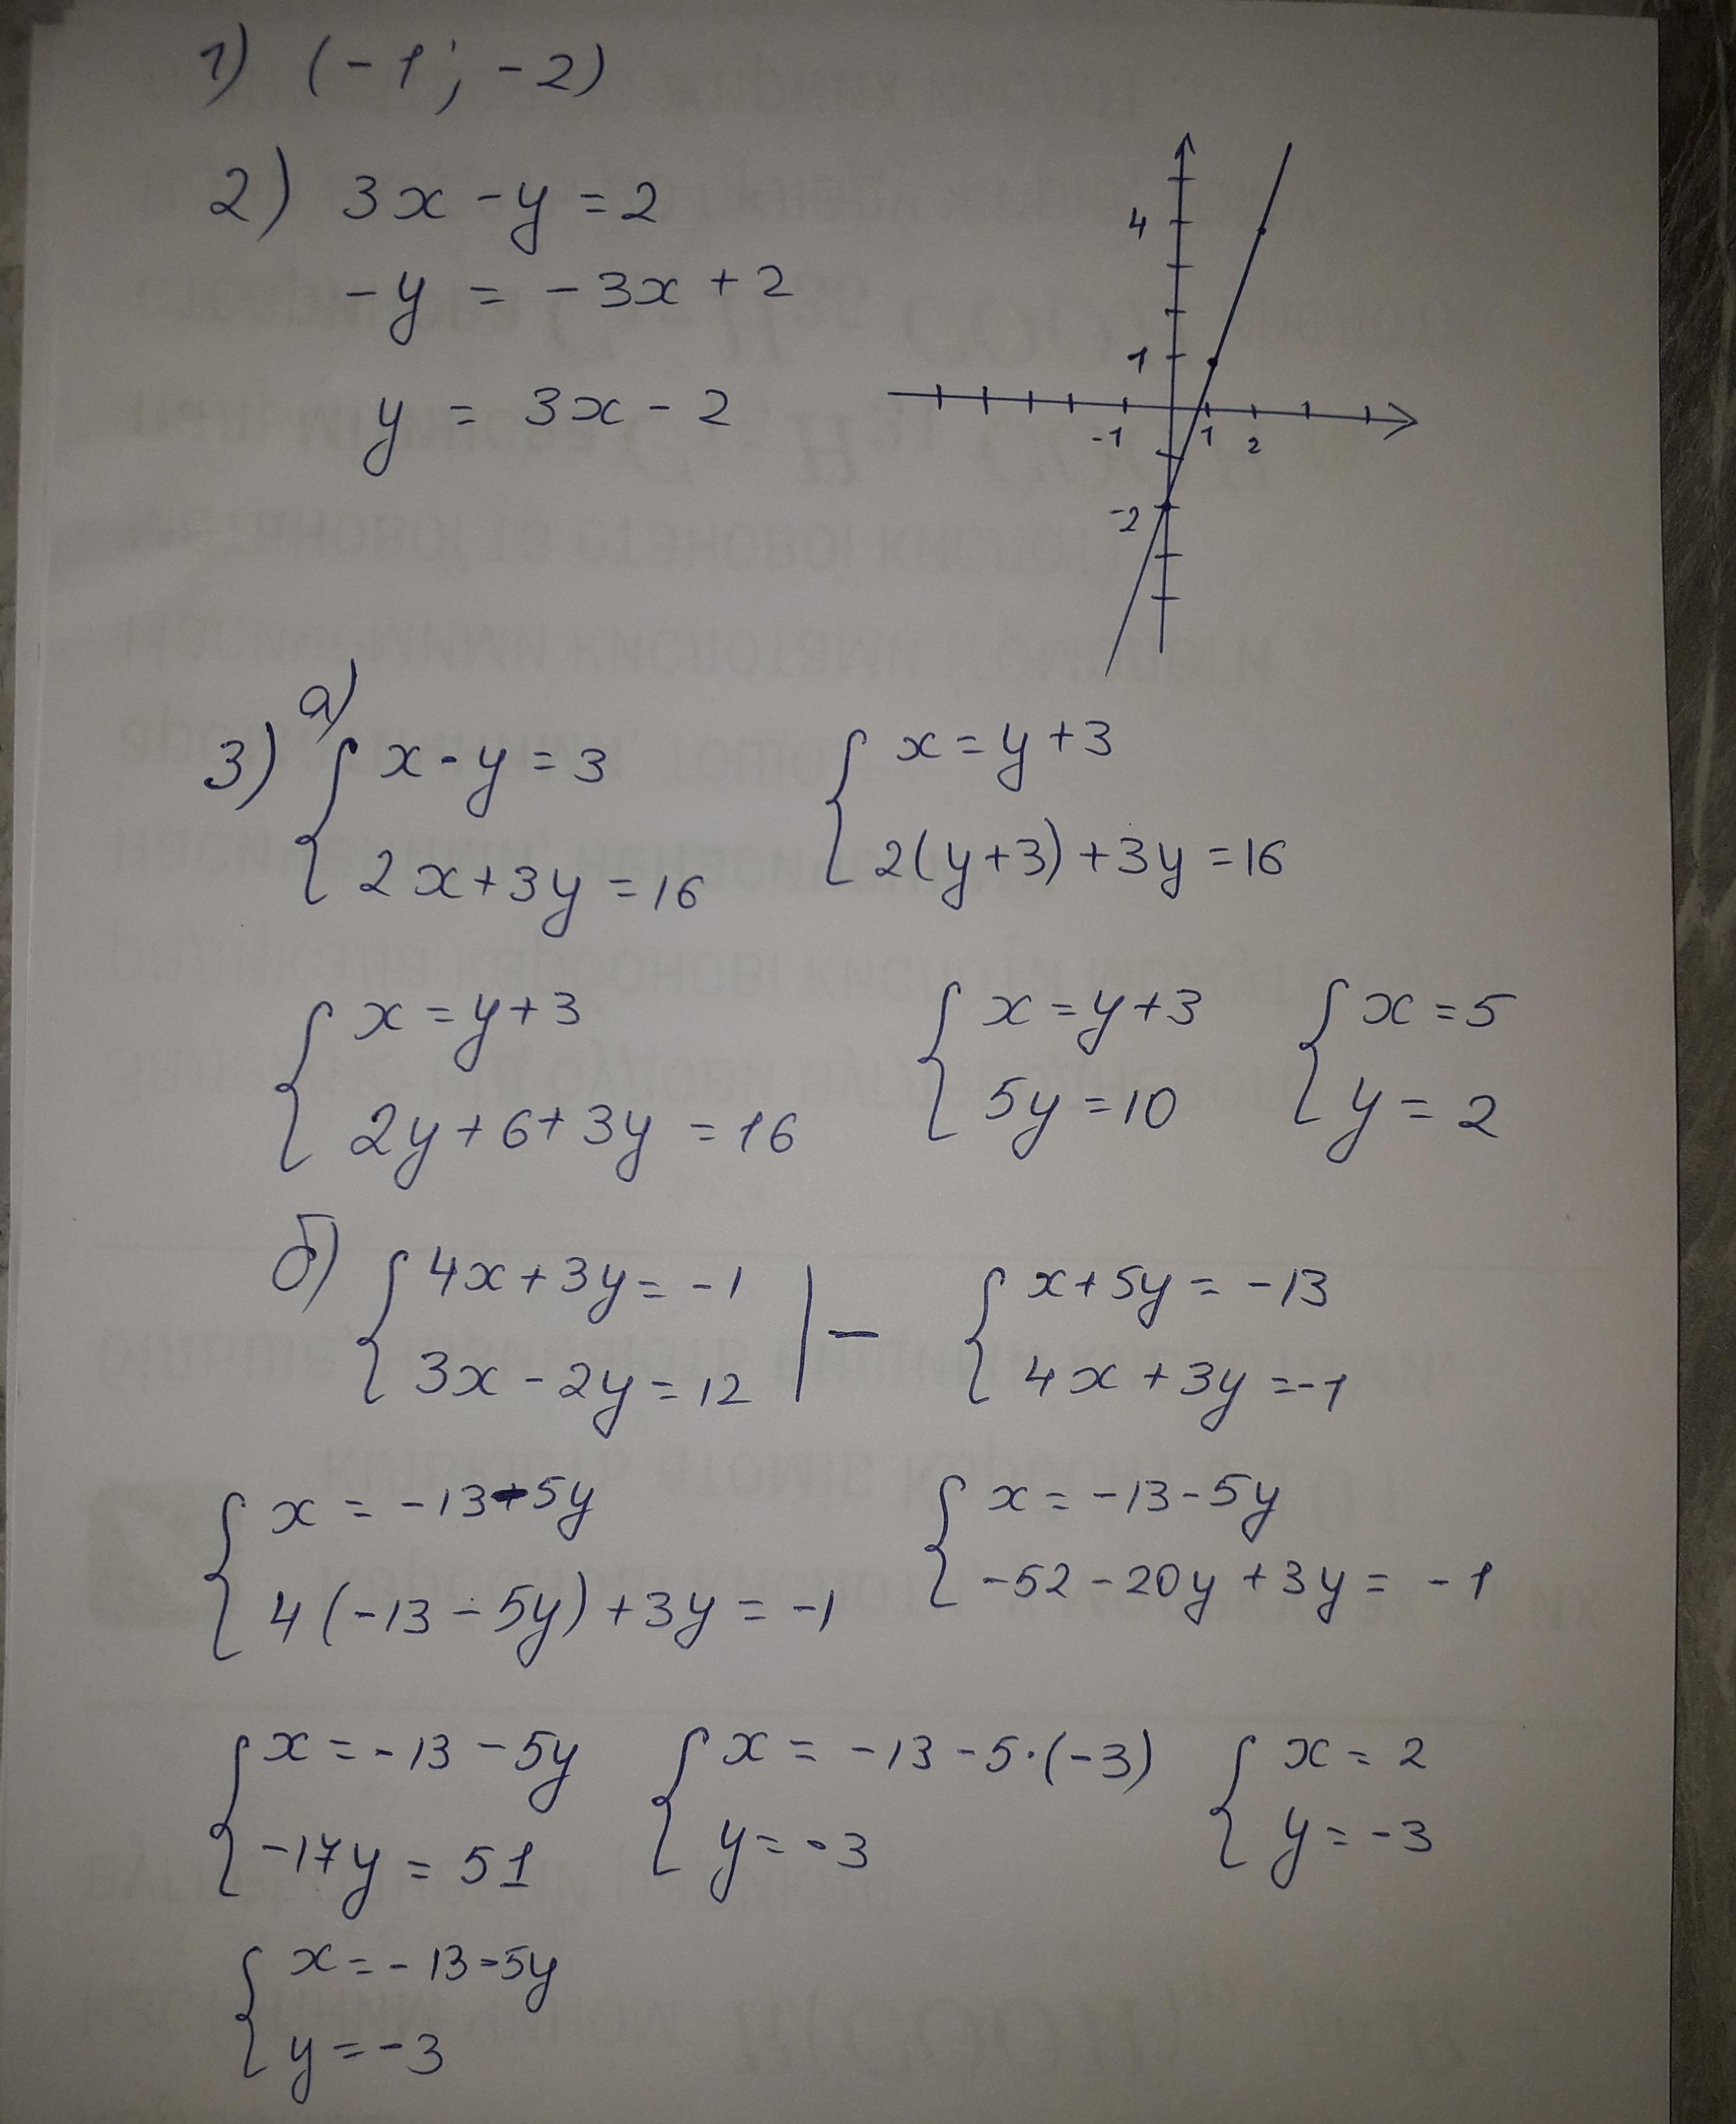 1) (-1; -2)
2) 3x - y = 2
-y = -3x + 2
y = 3x - 2
4
1
-1 1 2
-2
3) а) { x - y = 3
2x + 3y = 16
{ x = y + 3
2(y+3) + 3y = 16
{ x = y + 3
2y + 6 + 3y = 16
{ x = y + 3
5y = 10
{ x = 5
y = 2
б) { 4x + 3y = -1
3x - 2y = 12 | -
{ x + 5y = -13
4x + 3y = -1
{ x = -13 - 5y
4(-13 - 5y) + 3y = -1
{ x = -13 - 5y
-52 - 20y + 3y = -1
{ x = -13 - 5y
-17y = 51
{ x = -13 - 5·(-3)
y = -3
{ x = 2
y = -3
{ x = -13 - 5y
y = -3